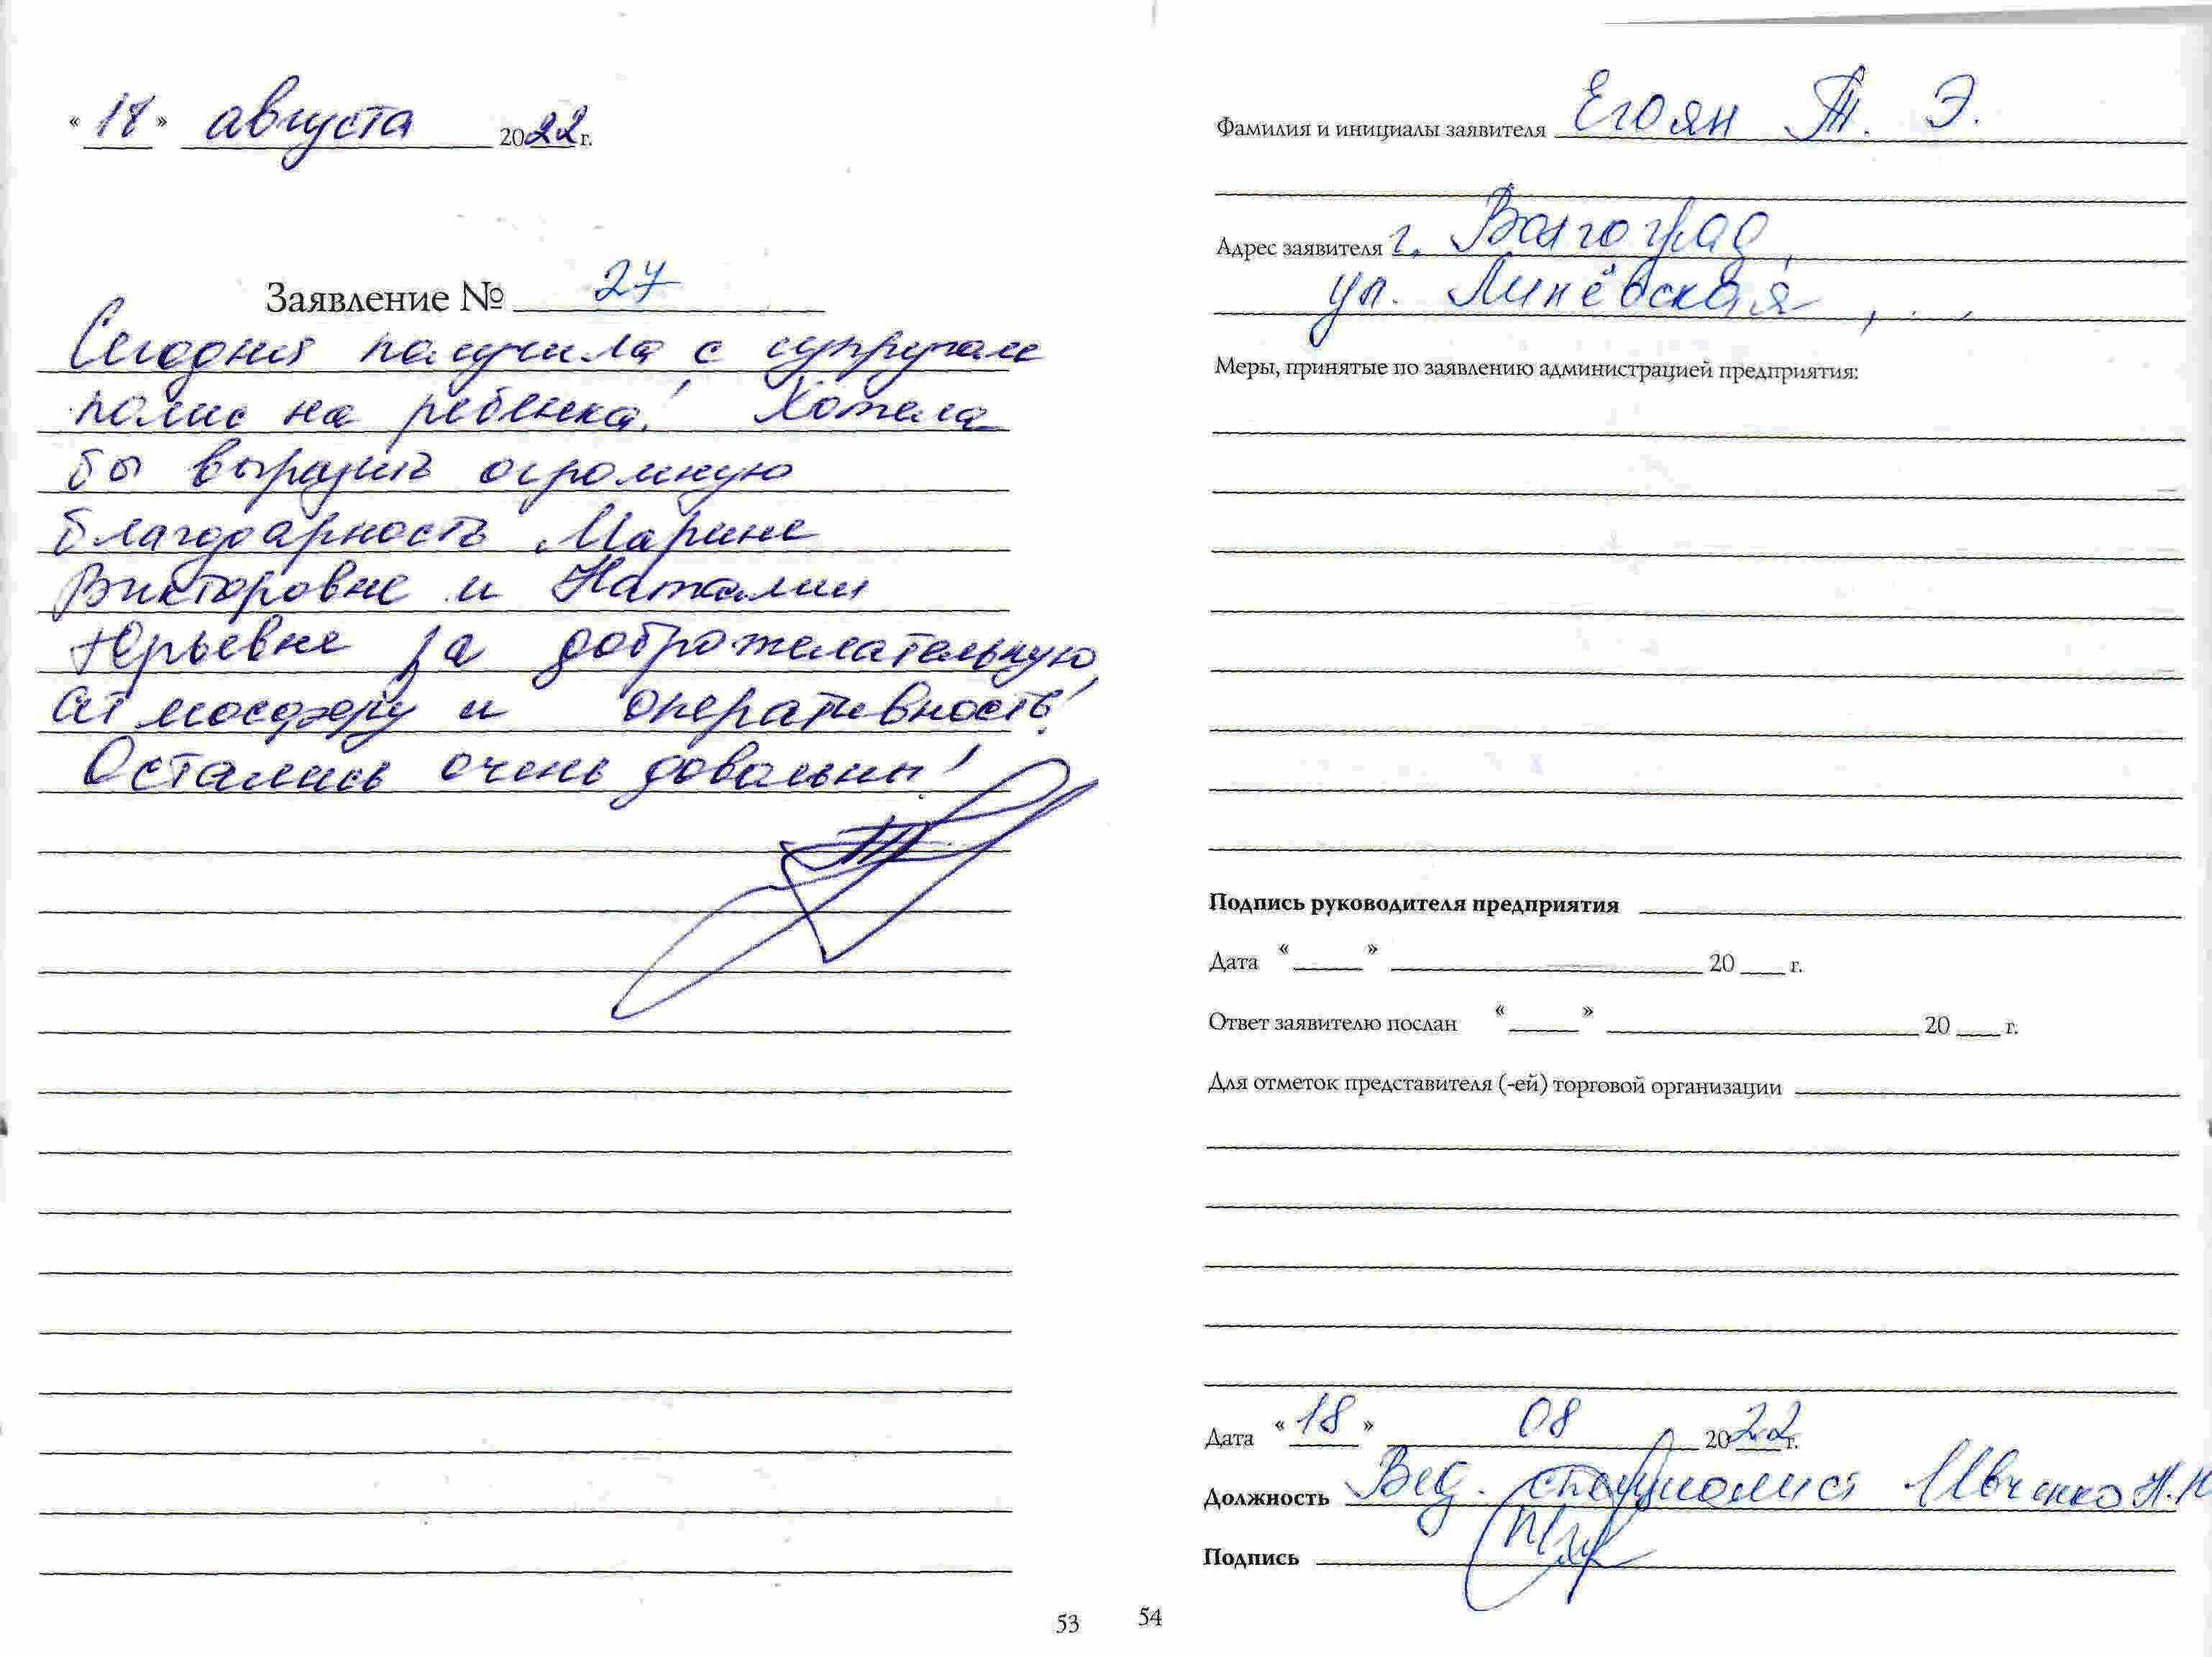 « 18 » августа 2022 г.
Заявление № 27
Сегодня получила с супругом
полис на ребенка! Хотела
бы выразить огромную
благодарность Марине
Викторовне и Наталии
Юрьевне за доброжелательную
атмосферу и оперативность!
Остались очень довольны!
53
Фамилия и инициалы заявителя Егоян Т. Э.
Адрес заявителя г. Волгоград,
ул. Линёвская,
Меры, принятые по заявлению администрацией предприятия:
Подпись руководителя предприятия
Дата « » 20 г.
Ответ заявителю послан « » 20 г.
Для отметок представителя (-ей) торговой организации
Дата « 18 » 08 2022 г.
Должность Вед. специалист Ивченко Н.
Подпись
54